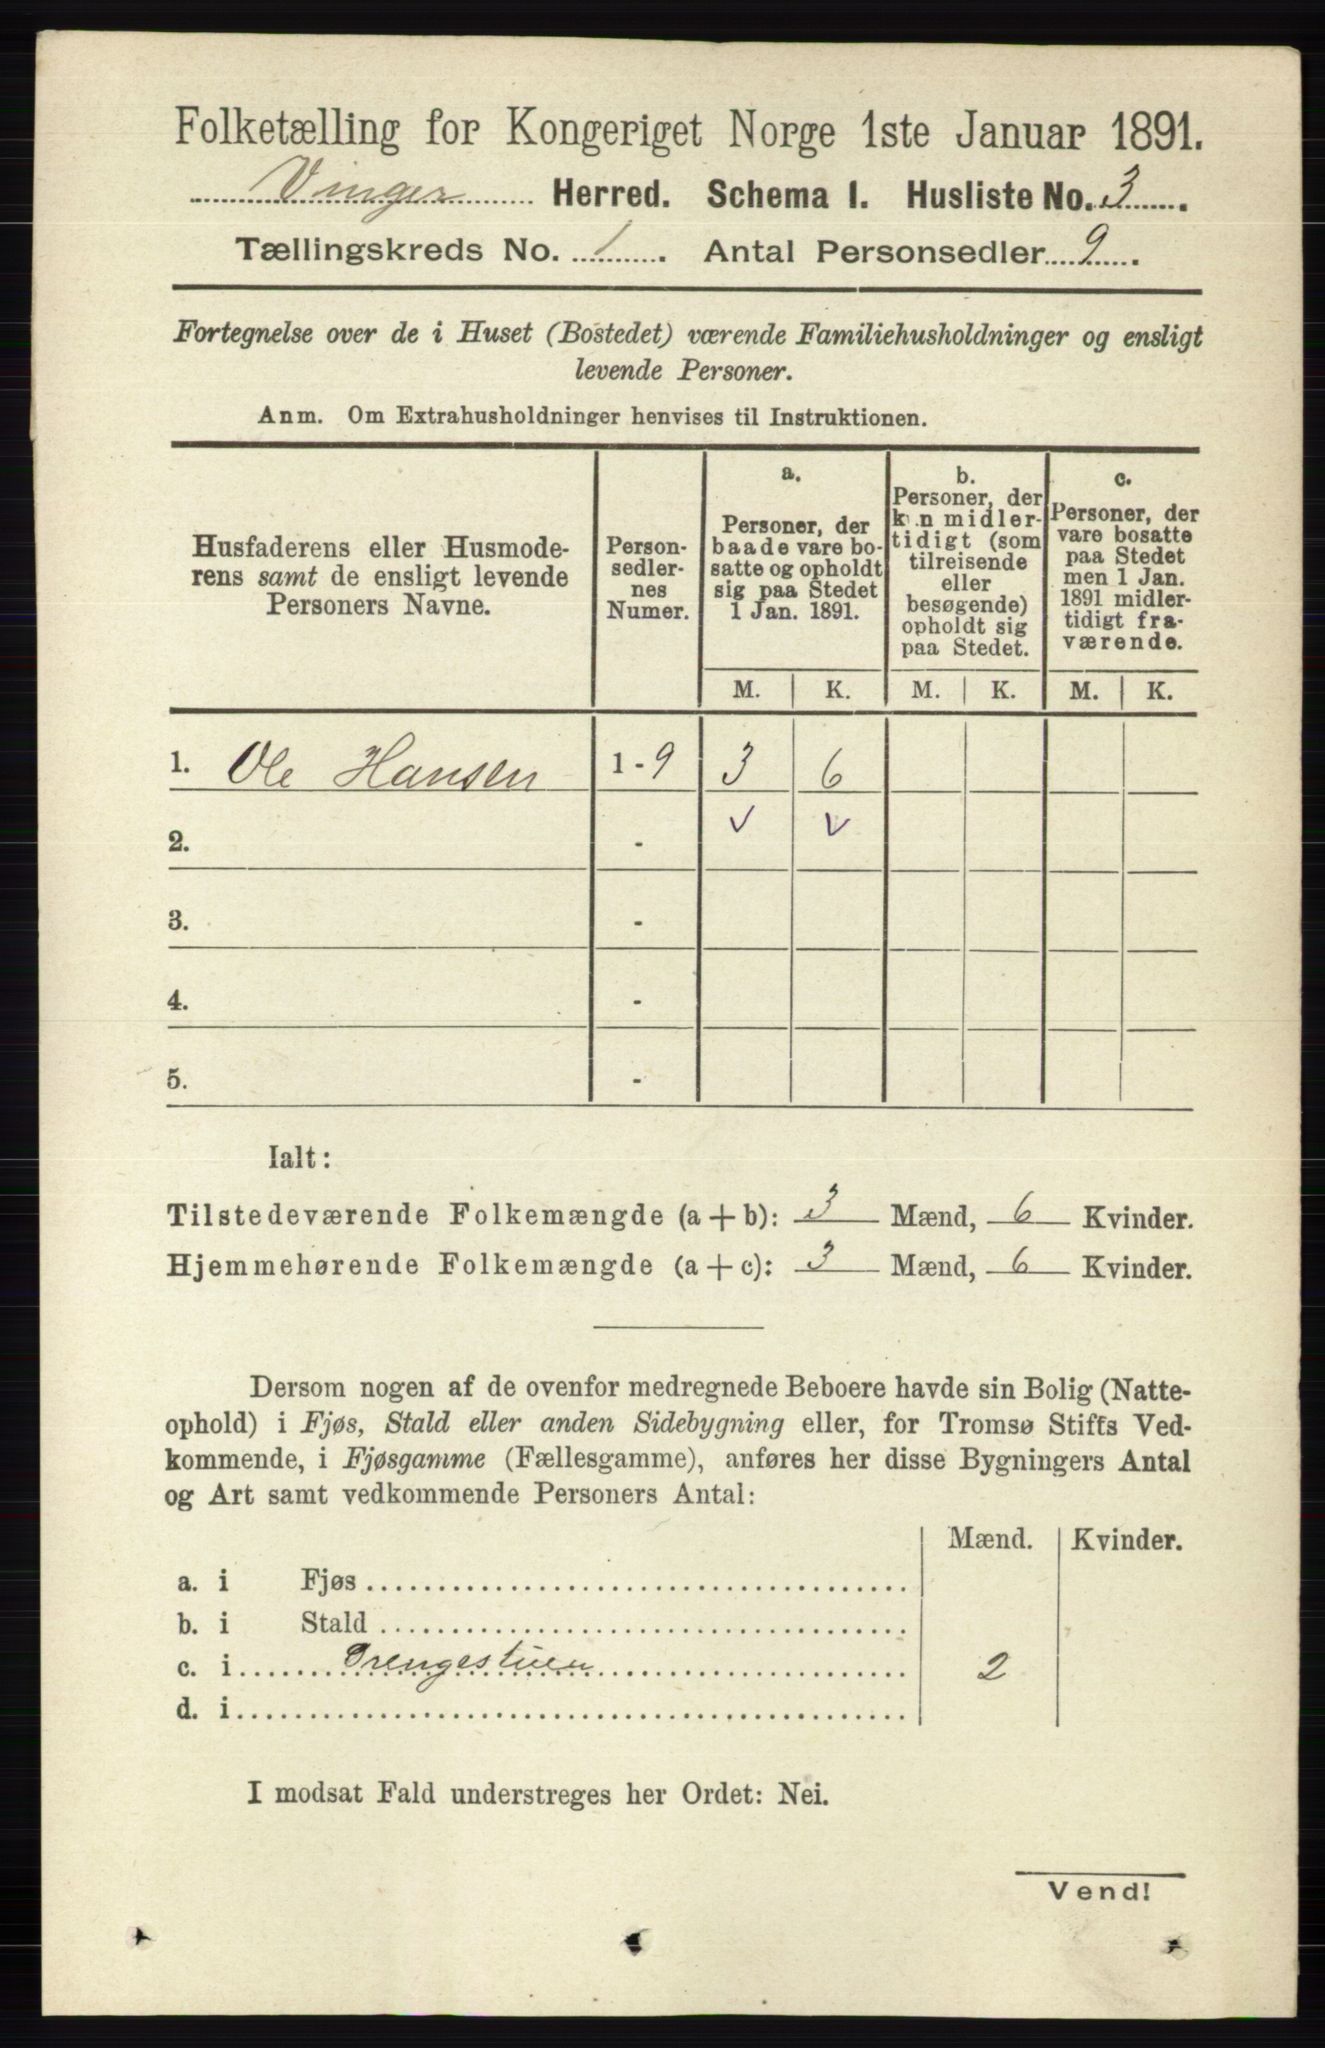 Folketælling for Kongeriget Norge 1ste Januar 1891.
Vinger Herred. Schema I. Husliste No. 3
Tællingskreds No. 1. Antal Personsedler 9.
Fortegnelse over de i Huset (Bostedet) værende Familiehusholdninger og ensligt
levende Personer.
Anm. Om Extrahusholdninger henvises til Instruktionen.
Husfaderens eller Husmode-
rens samt de ensligt levende
Personers Navne.
Person-
sedler-
nes
Numer.
a.
Personer, der
baade vare bo-
satte og opholdt
sig paa Stedet
1 Jan. 1891.
b.
Personer, der
kun midler-
tidigt (som
tilreisende
eller
besøgende)
opholdt sig
paa Stedet.
c.
Personer, der
vare bosatte
paa Stedet
men 1 Jan.
1891 midler-
tidigt fra-
værende.
M. K. M. K. M. K.
1. Ole Hansen 1-9 3 6
2. - v v
3. -
4. -
5. -
Ialt:
Tilstedeværende Folkemængde (a+b): 3 Mænd, 6 Kvinder.
Hjemmehørende Folkemængde (a+c): 3 Mænd, 6 Kvinder.
Dersom nogen af de ovenfor medregnede Beboere havde sin Bolig (Natte-
ophold) i Fjøs, Stald eller anden Sidebygning eller, for Tromsø Stifts Ved-
kommende, i Fjøsgamme (Fællesgamme), anføres her disse Bygningers Antal
og Art samt vedkommende Personers Antal:
Mænd. Kvinder.
a. i Fjøs
b. i Stald
c. i Drengestuen 2
d. i
I modsat Fald understreges her Ordet: Nei.
Vend!